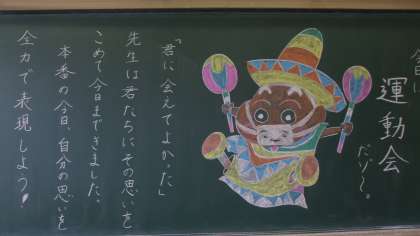 運動会
だゾ〜。
「君に会えてよかった」
先生は君たちにその思いを
こめて今日まできました。
本番の今日、自分の思いを
全力で表現しよう!